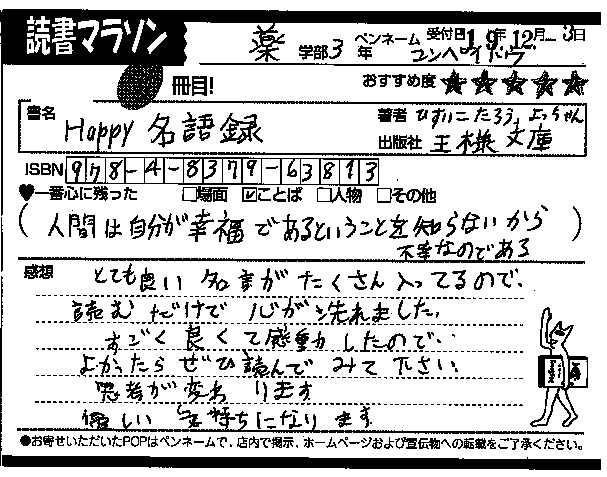 読書マラソン
薬 学部 3 年 ペンネーム コンヘイドウ
受付日 19年 12月 3日
冊目!
おすすめ度 ★★★★★
書名 Happy 名語録
著者 ひすいこたろう, よっちゃん
出版社 王様文庫
ISBN 978-4-8379-63813
♥一番心に残った □場面 ☑ことば □人物 □その他
(人間は自分が幸福であるということを知らないから
不幸なのである)
感想 とても良い 名言が たくさん入ってるので、
読むだけで 心が洗れました。
すごく良くて感動したので、
よかったらぜひ読んでみて下さい。
思考が変わります
優しい 気持ちになります
●お寄せいただいたPOPはペンネームで、店内で掲示、ホームページおよび宣伝物への転載をご了承ください。